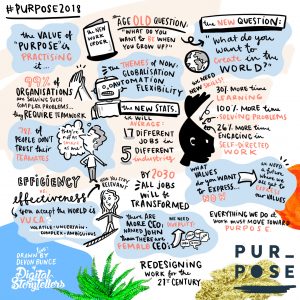 #PURPOSE2018
the VALUE of
"PURPOSE" is
PRACTISING
it...
99% OF
ORGANISATIONS
are SOLVING SUCH
COMPLEX PROBLEMS...
they REQUIRE TEAMWORK
78% OF
PEOPLE DON'T
TRUST their
TEAMMATES
EFFICIENCY
effectiveness
you accept the WORLD is
VUCA:
VOLATILE · UNCERTAIN ·
COMPLEX · AMBIGUOUS
DRAWN BY
DEVON BUNCE
Digital
Storytellers
the NEW
WORK
ORDER
the AGE OLD QUESTION:
"WHAT DO YOU
WANT to BE WHEN
YOU GROW UP?"
the THEMES OF NOW:
GLOBALISATION
AUTOMATION
FLEXIBILITY
the NEW STATS.
WILL
AVERAGE:
17 DIFFERENT
JOBS in
5 DIFFERENT
industries
by 2030
ALL JOBS
will be
TRANSFORMED
HOW will they
STAY RELEVANT?
there ARE
MORE CEO's
NAMED JOHN
than THERE are
FEMALE CEO's
WE NEED
DIVERSITY
REDESIGNING
WORK for the
21st CENTURY
the NEW QUESTION:
"What do you
want to
Create in the
WORLD?"
WE NEED
NEW SKILLS!
30% MORE TIME
LEARNING
100% MORE TIME
SOLVING PROBLEMS
26% MORE TIME
ENGAGING in
SELF-DIRECTED
WORK
WHAT
VALUES
do you
WANT
to EXPRESS...
NOW
EVERYTHING WE DO at
WORK must MOVE TOWARD
PURPOSE
PUR_
POSE